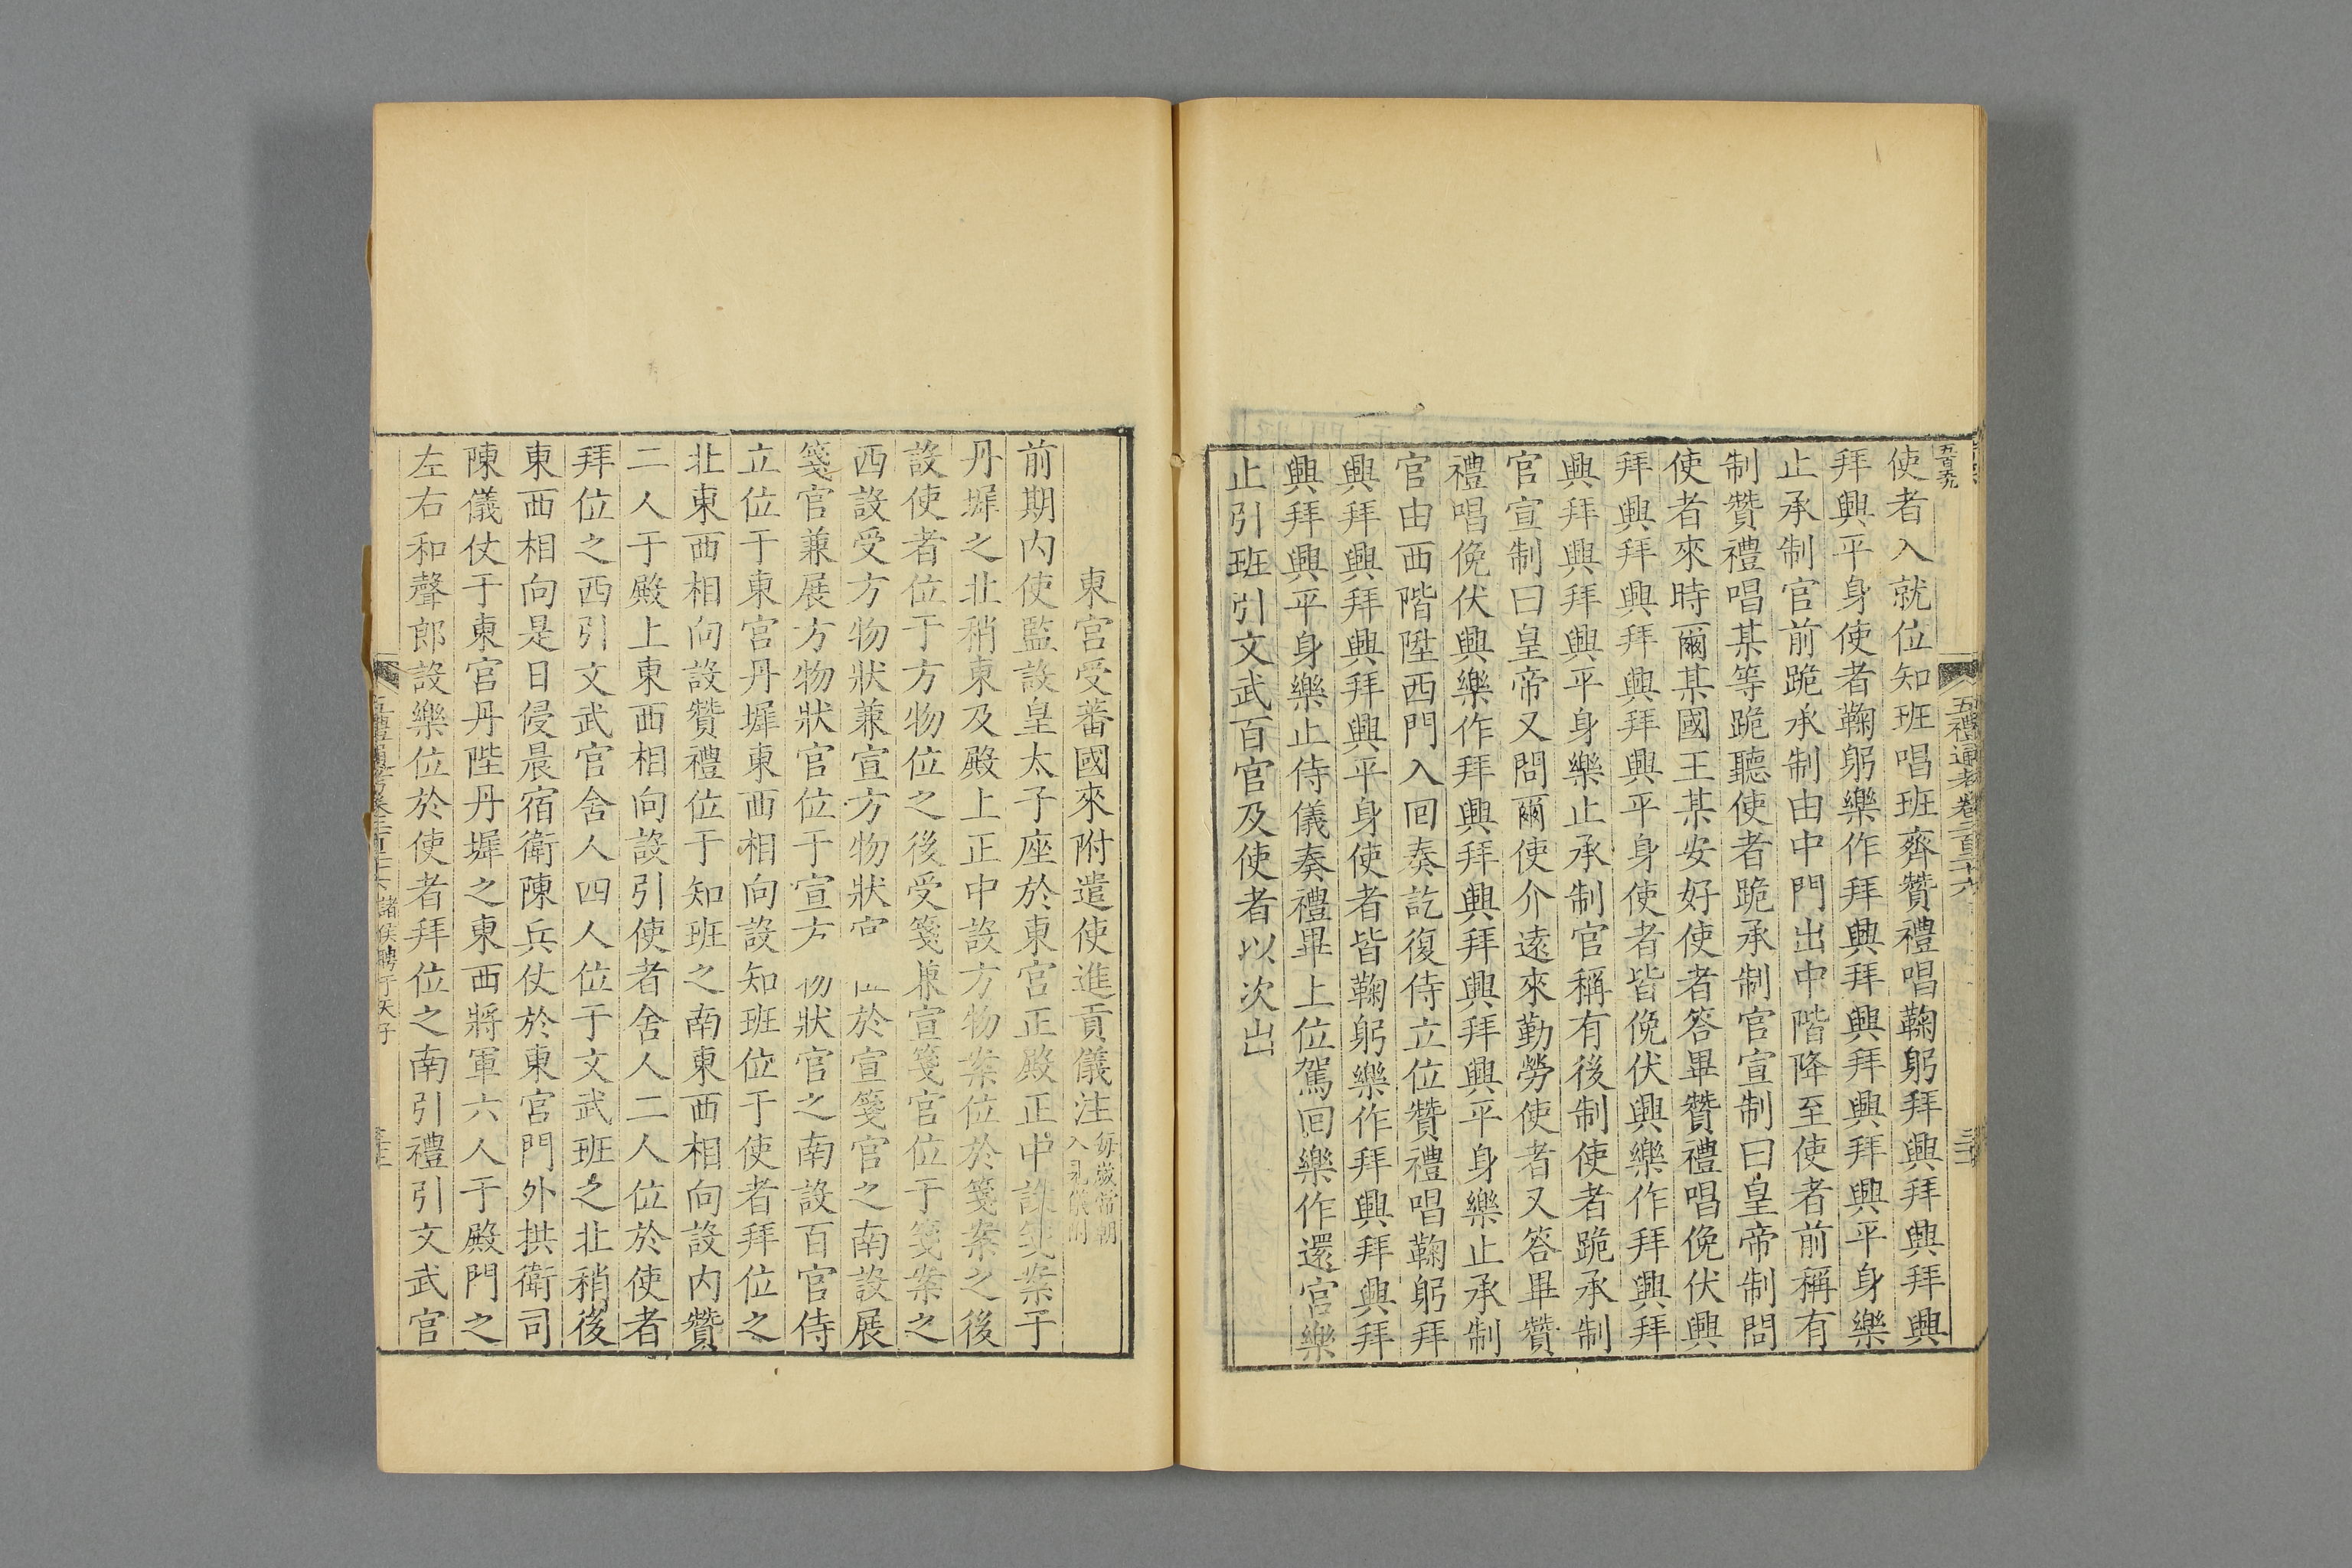 五禮通考卷二百二十六
使者入就位知班唱班齊贊禮唱鞠躬拜興拜興拜興
拜興平身使者鞠躬樂作拜興拜興拜興拜興平身樂
止承制官前跪承制由中門出中階降至使者前稱有
制贊禮唱某等跪聽使者跪承制官宣制曰皇帝制問
使者來時爾某國王某安好使者答畢贊禮唱俛伏興
拜興拜興拜興拜興平身使者皆俛伏興樂作拜興拜
興拜興拜興平身樂止承制官稱有後制使者跪承制
官宣制曰皇帝又問爾使介遠來勤勞使者又答畢贊
禮唱俛伏興樂作拜興拜興拜興拜興平身樂止承制
官由西階陞西門入回奏訖復侍立位贊禮唱鞠躬拜
興拜興拜興拜興平身使者皆鞠躬樂作拜興拜興拜
興拜興平身樂止侍儀奏禮畢上位駕回樂作還宫樂
止引班引文武百官及使者以次出
東宫受蕃國來附遣使進貢儀注
每歲常朝
入見儀附
前期内使監設皇太子座於東宫正殿正中設箋案于
丹墀之北稍東及殿上正中設方物案位於箋案之後
設使者位于方物位之後受箋兼宣箋官位于箋案之
西設受方物狀兼宣方物狀官位於宣箋官之南設展
箋官兼展方物狀官位于宣方物狀官之南設百官侍
立位于東宫丹墀東西相向設知班位于使者拜位之
北東西相向設贊禮位于知班之南東西相向設内贊
二人于殿上東西相向設引使者舍人二人位於使者
拜位之西引文武官舍人四人位于文武班之北稍後
東西相向是日侵晨宿衛陳兵仗於東宫門外拱衛司
陳儀仗于東宫丹陛丹墀之東西將軍六人于殿門之
左右和聲郎設樂位於使者拜位之南引禮引文武官
諸侯聘于天子